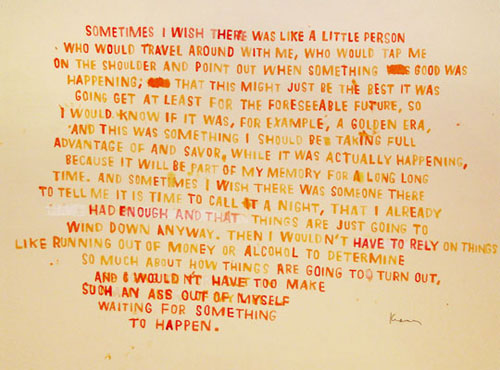 SOMETIMES I WISH THERE WAS LIKE A LITTLE PERSON
WHO WOULD TRAVEL AROUND WITH ME, WHO WOULD TAP ME
ON THE SHOULDER AND POINT OUT WHEN SOMETHING GOOD WAS
HAPPENING; THAT THIS MIGHT JUST BE THE BEST IT WAS
GOING GET AT LEAST FOR THE FORESEEABLE FUTURE, SO
I WOULD KNOW IF IT WAS, FOR EXAMPLE, A GOLDEN ERA,
AND THIS WAS SOMETHING I SHOULD BE TAKING FULL
ADVANTAGE OF AND SAVOR, WHILE IT WAS ACTUALLY HAPPENING,
BECAUSE IT WILL BE PART OF MY MEMORY FOR A LONG LONG
TIME. AND SOMETIMES I WISH THERE WAS SOMEONE THERE
TO TELL ME IT IS TIME TO CALL IT A NIGHT, THAT I ALREADY
HAD ENOUGH AND THAT THINGS ARE JUST GOING TO
WIND DOWN ANYWAY. THEN I WOULDN'T HAVE TO RELY ON THINGS
LIKE RUNNING OUT OF MONEY OR ALCOHOL TO DETERMINE
SO MUCH ABOUT HOW THINGS ARE GOING TOO TURN OUT,
AND I WOULDN'T HAVE TOO MAKE
SUCH AN ASS OUT OF MYSELF
WAITING FOR SOMETHING
TO HAPPEN.